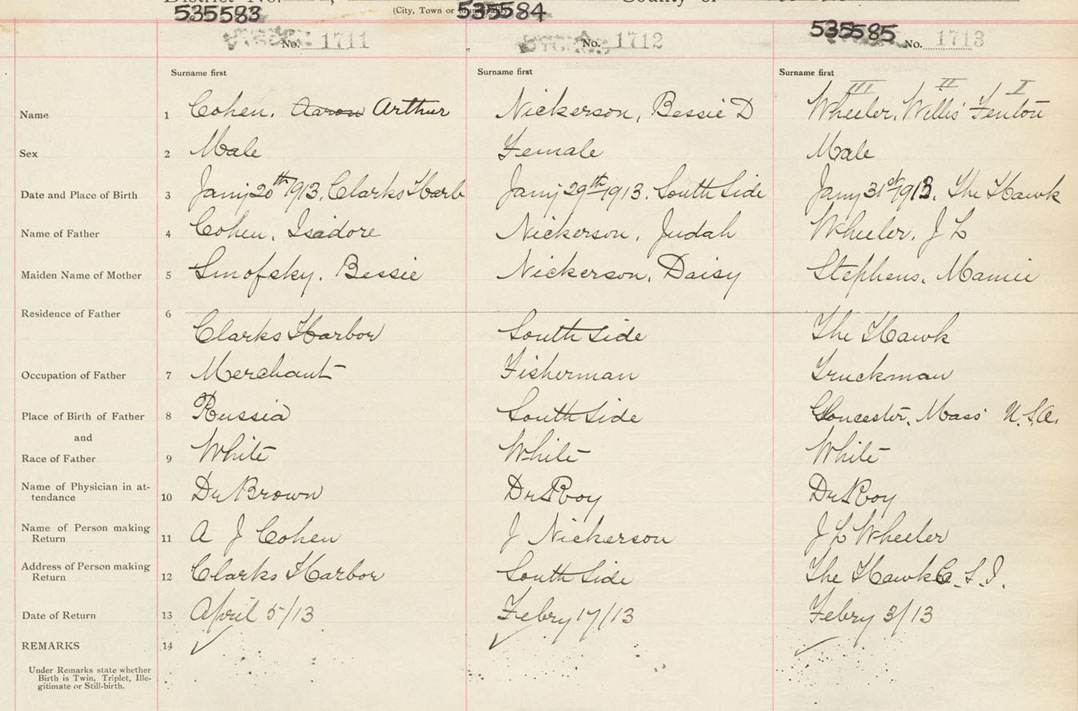 (City, Town or
535583 535584 535585
No. 1711 No. 1712 No. 1713
Surname first Surname first Surname first
III II I
Name 1 Cohen, Aaron Arthur Nickerson, Bessie D Wheeler, Willis Fenton
Sex 2 Male Female Male
Date and Place of Birth 3 Jany 20th 1913, Clarks Harb Jany 29th 1913. South Side Jany 31st 1913. The Hawk
Name of Father 4 Cohen, Isadore Nickerson, Judah Wheeler, J L
Maiden Name of Mother 5 Smofsky, Bessie Nickerson, Daisy Stephens, Mamie
Residence of Father 6 Clarks Harbor South Side The Hawk
Occupation of Father 7 Merchant Fisherman Truckman
Place of Birth of Father 8 Russia South Side Gloucester, Mass U.S.A.
and
Race of Father 9 White White White
Name of Physician in at-
tendance 10 Dr Brown Dr Roy Dr Roy
Name of Person making
Return 11 A J Cohen J Nickerson J L Wheeler
Address of Person making
Return 12 Clarks Harbor South Side The Hawk C. S. I.
Date of Return 13 April 5/13 Febry 17/13 Febry 3/13
REMARKS 14
Under Remarks state whether
Birth is Twin, Triplet, Ille-
gitimate or Still-birth.